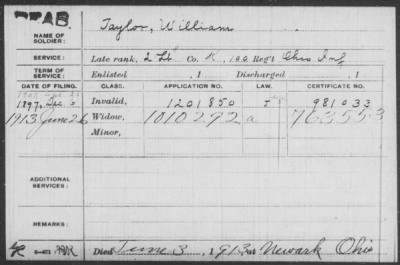 NAME OF SOLDIER: Taylor, William
SERVICE: Late rank, 2 Lt Co. K, 100 Reg't Ohio Inf
TERM OF SERVICE: Enlisted , 1 Discharged , 1
DATE OF FILING. CLASS. APPLICATION NO. LAW. CERTIFICATE NO.
1897, Dec. Invalid, 1201850 981033
1913 June 26 Widow, 1010292 a 763553
Minor,
ADDITIONAL SERVICES:
REMARKS:
Died June 3, 1913, at Newark Ohio